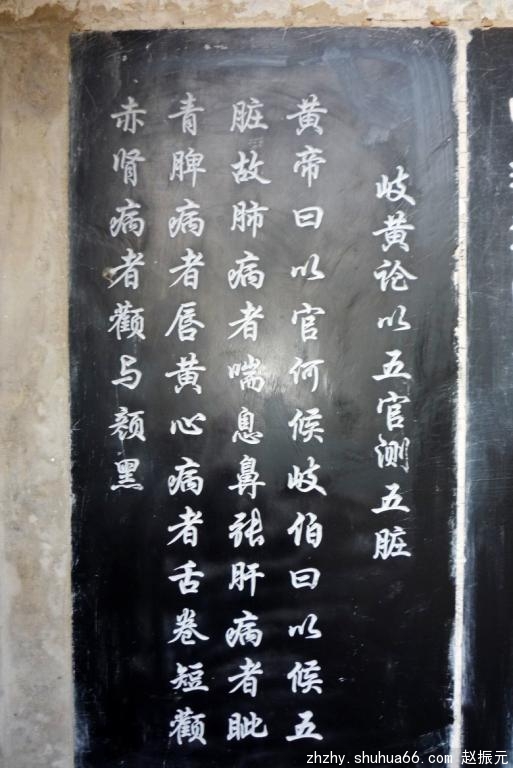 岐黄论以五官测五脏
黄帝曰以官何候岐伯曰以候五
脏故肺病者喘息鼻张肝病者眦
青脾病者唇黄心病者舌卷短颧
赤肾病者颧与颜黑
zhzhy.shuhua66.com 赵振元